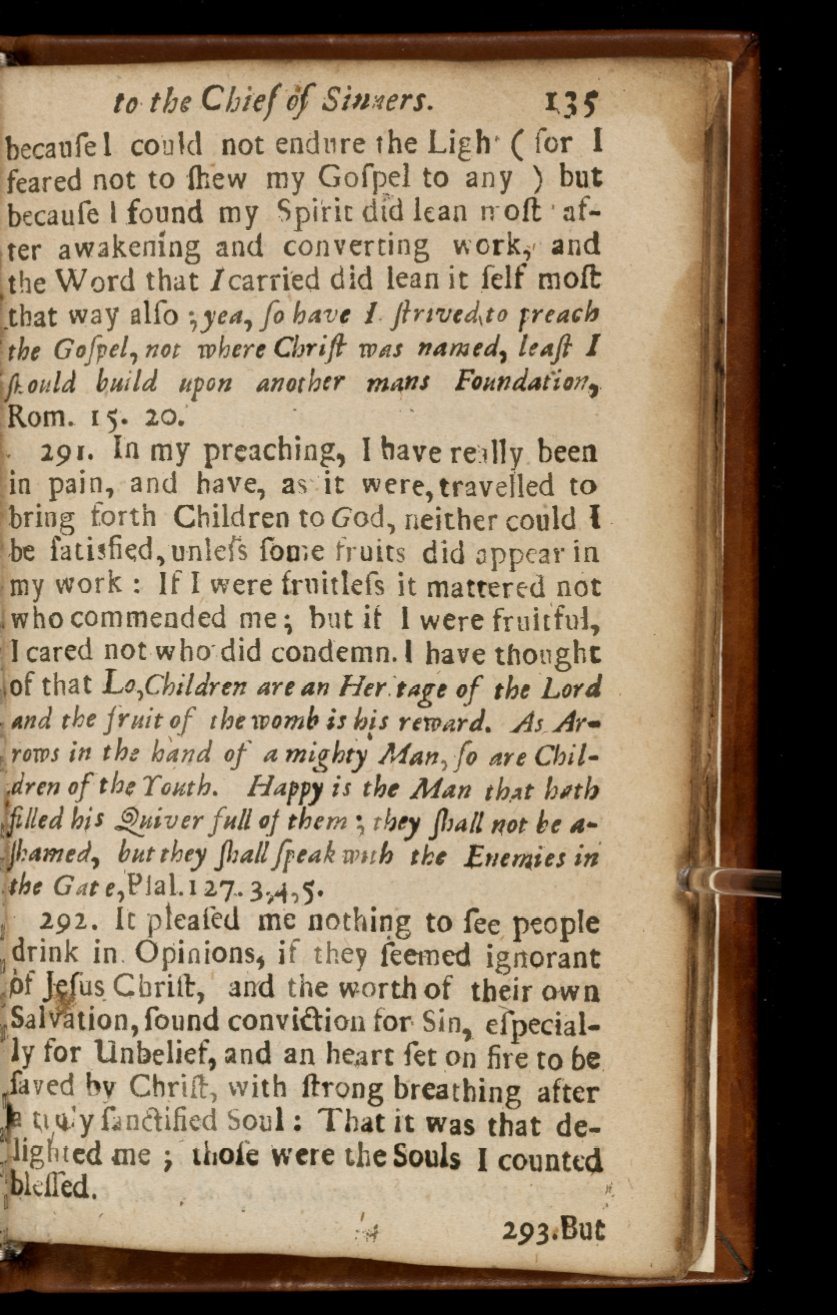 to the Chief of Sinners. 135
becauſe I could not endure the Ligh ( for I
feared not to ſhew my Goſpel to any ) but
becauſe I found my Spirit did lean moſt af-
ter awakening and converting work, and
the Word that I carried did lean it ſelf moſt
that way alſo ; yea, ſo have I ſtrived to preach
the Goſpel, not where Chriſt was named, leaſt I
ſhould build upon another mans Foundation,
Rom. 15. 20.
291. In my preaching, I have really been
in pain, and have, as it were, travelled to
bring forth Children to God, neither could I
be ſatisfied, unleſs ſome fruits did appear in
my work : If I were fruitleſs it mattered not
who commended me ; but if I were fruitful,
I cared not who did condemn. I have thought
of that Lo, Children are an Heritage of the Lord
and the fruit of the womb is his reward. As Ar-
rows in the hand of a mighty Man, ſo are Chil-
dren of the Youth. Happy is the Man that hath
filled his Quiver full of them ; they ſhall not be a-
ſhamed, but they ſhall ſpeak with the Enemies in
the Gate, Pſal. 127. 3, 4, 5.
292. It pleaſed me nothing to ſee people
drink in Opinions, if they ſeemed ignorant
of Jeſus Chriſt, and the worth of their own
Salvation, ſound conviction for Sin, eſpecial-
ly for Unbelief, and an heart ſet on fire to be
ſaved by Chriſt, with ſtrong breathing after
a truly ſanctified Soul : That it was that de-
lighted me ; thoſe were the Souls I counted
bleſſed.
293. But